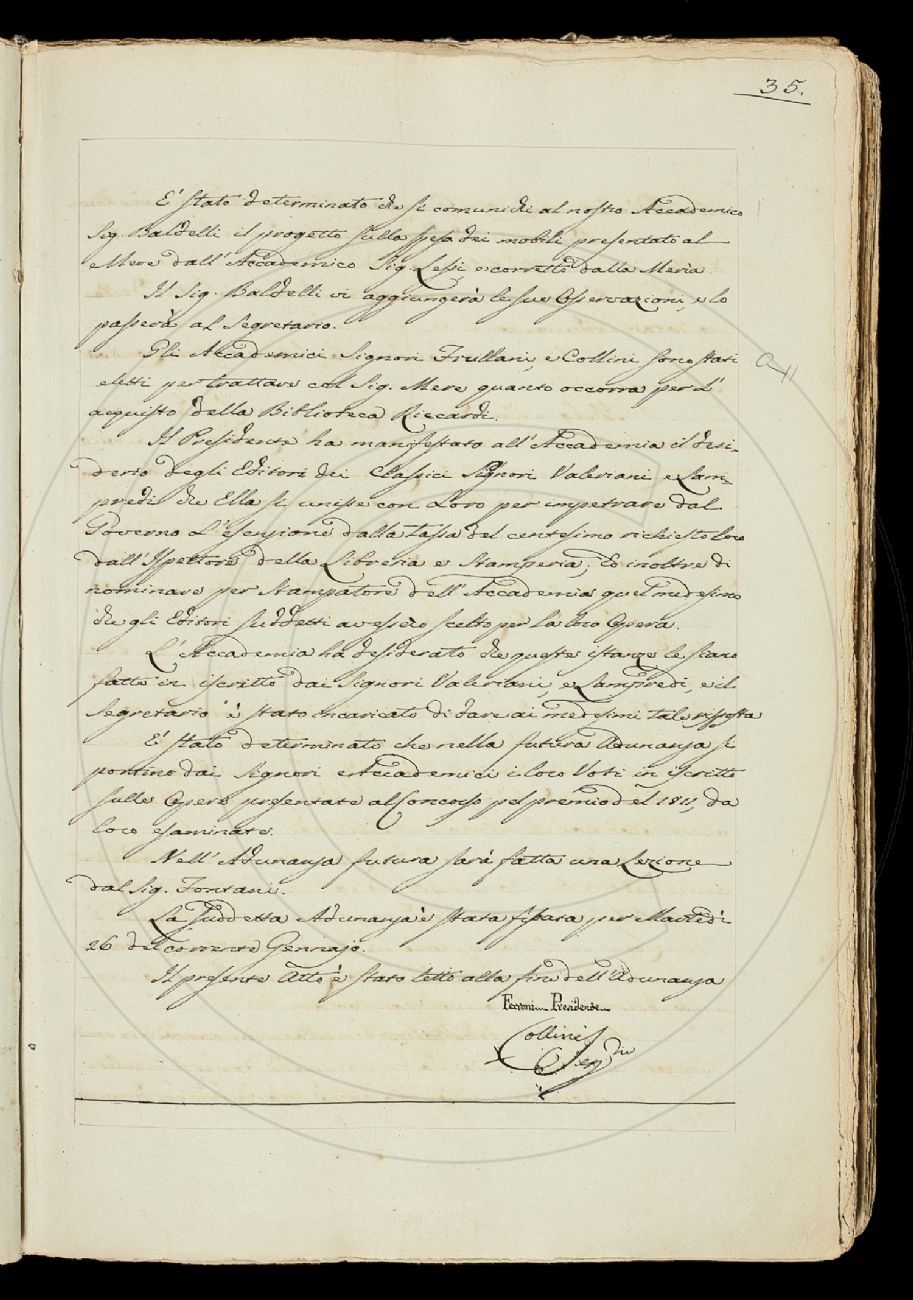 35.
E' stato determinato che si comunichi al nostro Accademico
Sig. Baldelli il progetto sulla spesa dei mobili presentato al
Mere dall'Accademico Sig. Lessi, e corretto dalla Meria.
Il Sig. Baldelli vi aggiungerà le sue Osservazioni, e lo
passerà al Segretario.
Gli Accademici Signori Frullani, e Collini sono stati
eletti per trattare col Sig. Mere quanto occorra per l'
acquisto della Biblioteca Riccardi.
Il Presidente ha manifestato all'Accademia il desi-
derio degli Editori dei Classici Signori Valeriani e Lam-
predi che Ella si unisse con Loro per impetrare dal
Governo l'esenzione dalla tassa del centesimo richiesto loro
dall'Ispettore della Libreria e Stamperia; Ed inoltre di
nominare per Stampatore dell'Accademia quel medesimo
che gli Editori suddetti avessero scelto per la loro Opera.
L'Accademia ha desiderato che queste istanze le siano
fatte in iscritto dai Signori Valeriani, e Lampredi, e il
Segretario è stato incaricato di dare ai medesimi tale risposta
E' stato determinato che nella futura Adunanza si
portino dai Signori Accademici i loro Voti in iscritto
sulle Opere presentate al Concorso pel premio del 1811, da
loro esaminate.
Nell'Adunanza futura sarà fatta una Lezione
dal Sig. Fontani.
La suddetta Adunanza è stata fissata per Martedì
26 del corrente Gennajo.
Il presente Atto è stato letto alla fine dell'Adunanza
Ferroni Presidente
Collini Seg.rio